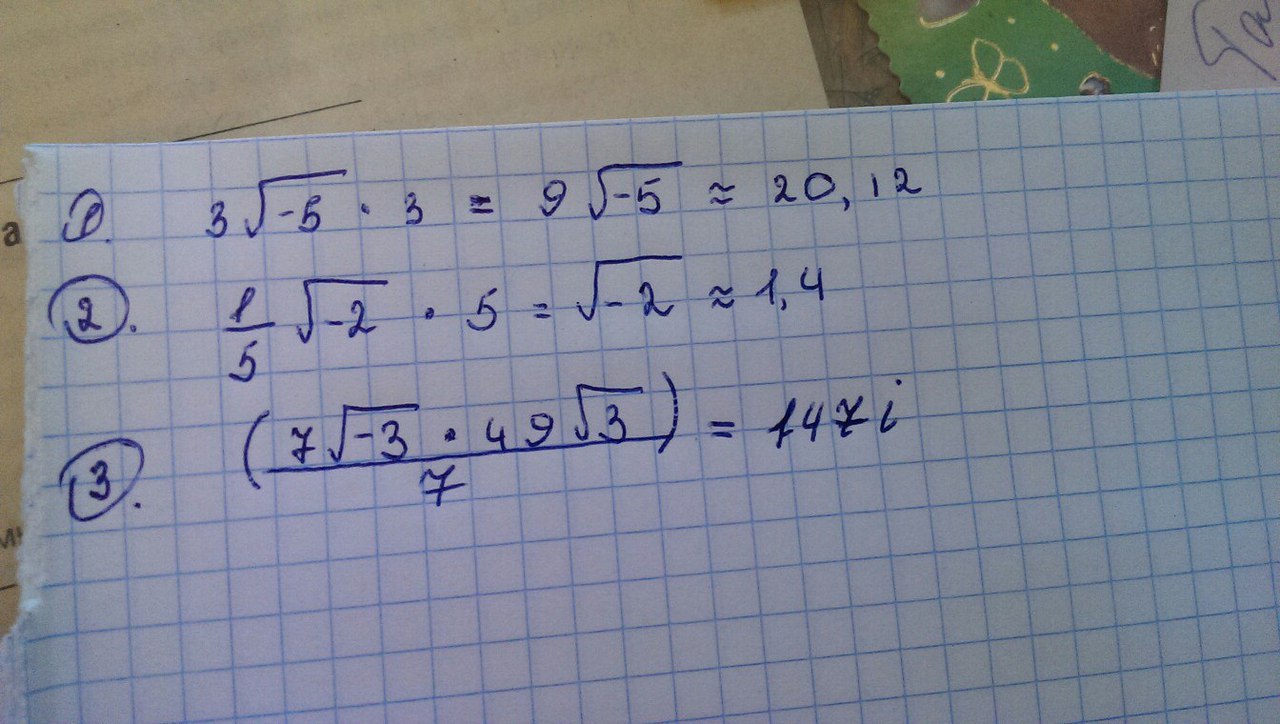 1. 3√-5 · 3 = 9√-5 ≈ 20,12
2. 1/5 √-2 · 5 = √-2 ≈ 1,4
3. (7√-3 · 49√3 / 7) = 147i